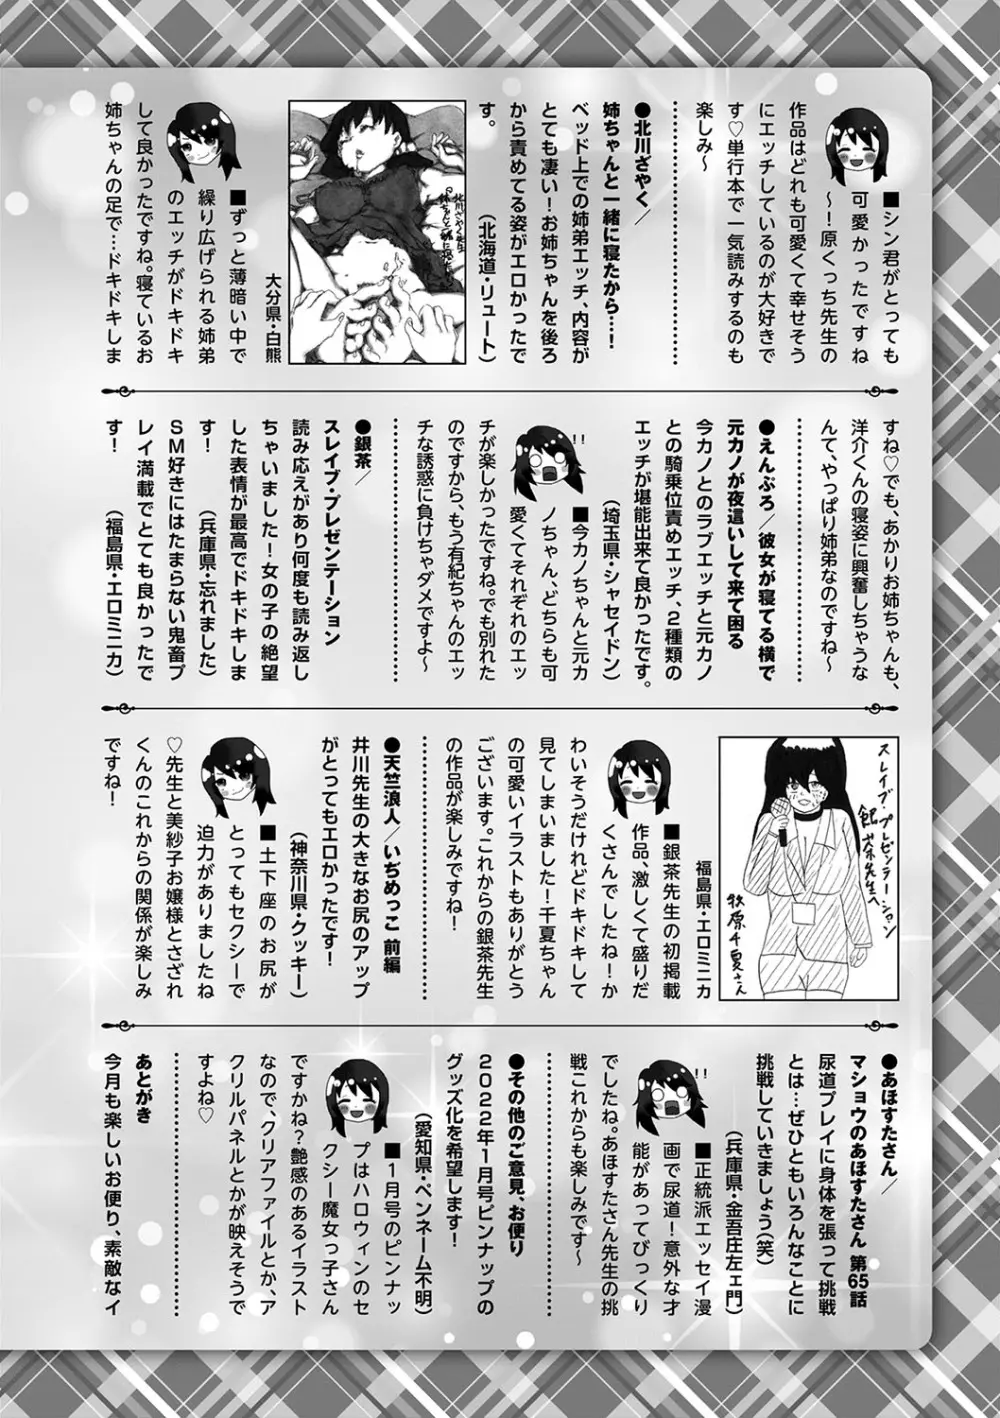 ■シン君がとっても
可愛かったですね
～！原くっち先生の
作品はどれも可愛くて幸せそう
にエッチしているのが大好きで
す♡単行本で一気読みするのも
楽しみ～
●北川ざやく／
姉ちゃんと一緒に寝たから……！
ベッド上での姉弟エッチ、内容が
とても凄い！お姉ちゃんを後ろ
から責めてる姿がエロかったで
す。
（北海道・リュート）
大分県・白熊
■ずっと薄暗い中で
繰り広げられる姉弟
のエッチがドキドキ
して良かったですね。寝ているお
姉ちゃんの足で…ドキドキしま
すね♡でも、あかりお姉ちゃんも、
洋介くんの寝姿に興奮しちゃうな
んて、やっぱり姉弟なのですね～
●えんぶろ／彼女が寝てる横で
元カノが夜這いして来て困る
今カノとのラブエッチと元カノ
との騎乗位責めエッチ、2種類の
エッチが堪能出来て良かったです。
（埼玉県・シャセイドン）
!!
■今カノちゃんと元カ
ノちゃん、どちらも可
愛くてそれぞれのエッ
チが楽しかったですね。でも別れた
のですから、もう有紀ちゃんのエッ
チな誘惑に負けちゃダメですよ～
●銀茶／
スレイブ・プレゼンテーション
読み応えがあり何度も読み返し
ちゃいました！女の子の絶望
した表情が最高でドキドキしま
す！
（兵庫県・忘れました）
SM好きにはたまらない鬼畜プ
レイ満載でとても良かったで
す！
（福島県・エロミニカ）
スレイブ・プレゼンテーション
銀茶先生へ
牧原千夏さん
福島県・エロミニカ
■銀茶先生の初掲載
作品、激しくて盛りだ
くさんでしたね！か
わいそうだけれどドキドキして
見てしまいました！千夏ちゃん
の可愛いイラストもありがとう
ございます。これからの銀茶先生
の作品が楽しみですね！
●天竺浪人／いぢめっこ 前編
井川先生の大きなお尻のアップ
がとってもエロかったです！
（神奈川県・クッキー）
■土下座のお尻が
とってもセクシーで
迫力がありましたね
♡先生と美紗子お嬢様とさざれ
くんのこれからの関係が楽しみ
ですね！
●あほすたさん／
マショウのあほすたさん 第65話
尿道プレイに身体を張って挑戦
とは…ぜひともいろんなことに
挑戦していきましょう（笑）
（兵庫県・金吾庄左ェ門）
!!
■正統派エッセイ漫
画で尿道！意外な才
能があってびっくり
でしたね。あほすたさん先生の挑
戦これからも楽しみです～
●その他のご意見、お便り
2022年1月号ピンナップの
グッズ化を希望します！
（愛知県・ペンネーム不明）
■1月号のピンナッ
プはハロウィンのセ
クシー魔女っ子さん
ですかね？艶感のあるイラスト
なので、クリアファイルとか、ア
クリルパネルとかが映えそうで
すよね♡
あとがき
今月も楽しいお便り、素敵なイ